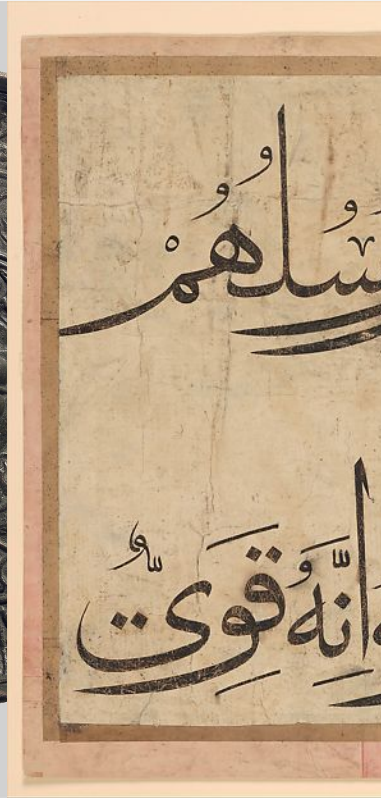 رُسُلُهُمْ
اِنَّهُ قَوِيٌّ